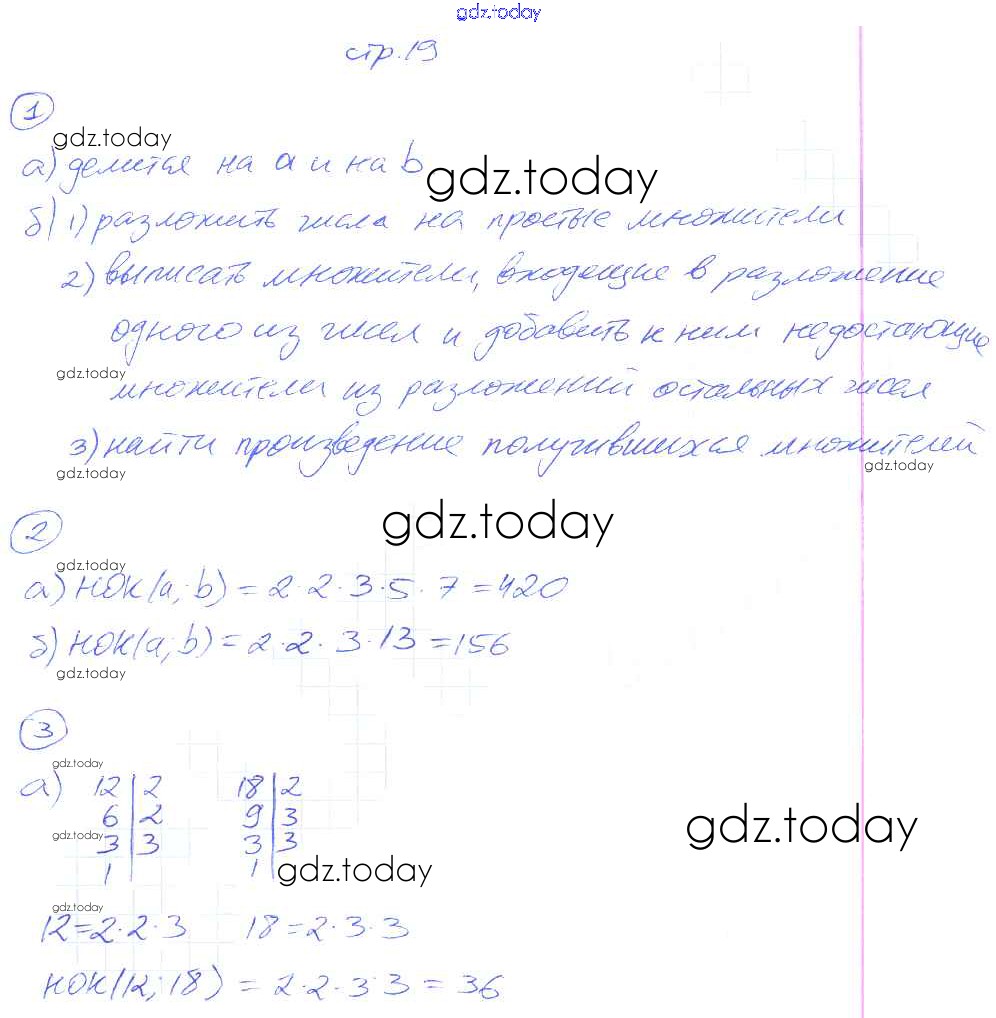 gdz.today
стр.19
1
gdz.today
а) делится на a и на b
gdz.today
б) 1) разложить числа на простые множители
2) выписать множители, входящие в разложение
одного из чисел и добавить к ним недостающие
gdz.today
множители из разложений остальных чисел
3) найти произведение получившихся множителей
gdz.today
gdz.today
gdz.today
2
gdz.today
а) НОК(a; b) = 2·2·3·5·7 = 420
б) НОК(a; b) = 2·2·3·13 = 156
gdz.today
3
gdz.today
а) 12 | 2 18 | 2
6 | 2 9 | 3
gdz.today
gdz.today
3 | 3 3 | 3
1 | 1 |
gdz.today
gdz.today
12=2·2·3 18=2·3·3
НОК(12; 18) = 2·2·3·3 = 36